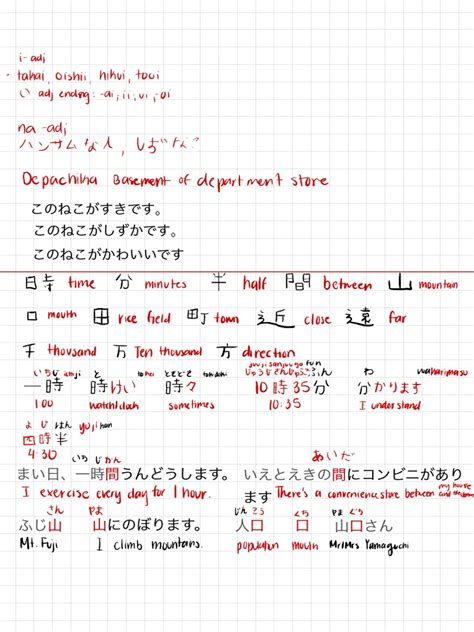 i-adj
takai, oishii, hikui, tooi
い adj ending: -ai, ii, ui, -oi
na-adj
ハンサムな人,
Depachika Basement of department store
このねこがすきです。
このねこがしずかです。
このねこがかわいいです
時 time 分 minutes 半 half 間 between 山 mountain
口 mouth 田 rice field 町 town 近 close 遠 far
千 thousand 万 Ten thousand 方 direction
いちじ ichiji と tokei ときどき tokidoki じゅうじさんじゅうごふん わ wakarimasu
一時 時けい 時々 10時35分 分かります
1:00 watch/clock sometimes 10:35 I understand
よ じ はん yojihan
四時半
4:30
いち じ かん あいだ
まい日、一時間うんどうします。 いえとえきの間にコンビニがあり
I exercise every day for 1 hour. ます There's a convenience store between my house and
さん やま じん こう くち やま ぐち
ふじ山 山にのぼります。 人口 口 山口さん
Mt. Fuji I climb mountains. population mouth Mr/Mrs Yamaguchi